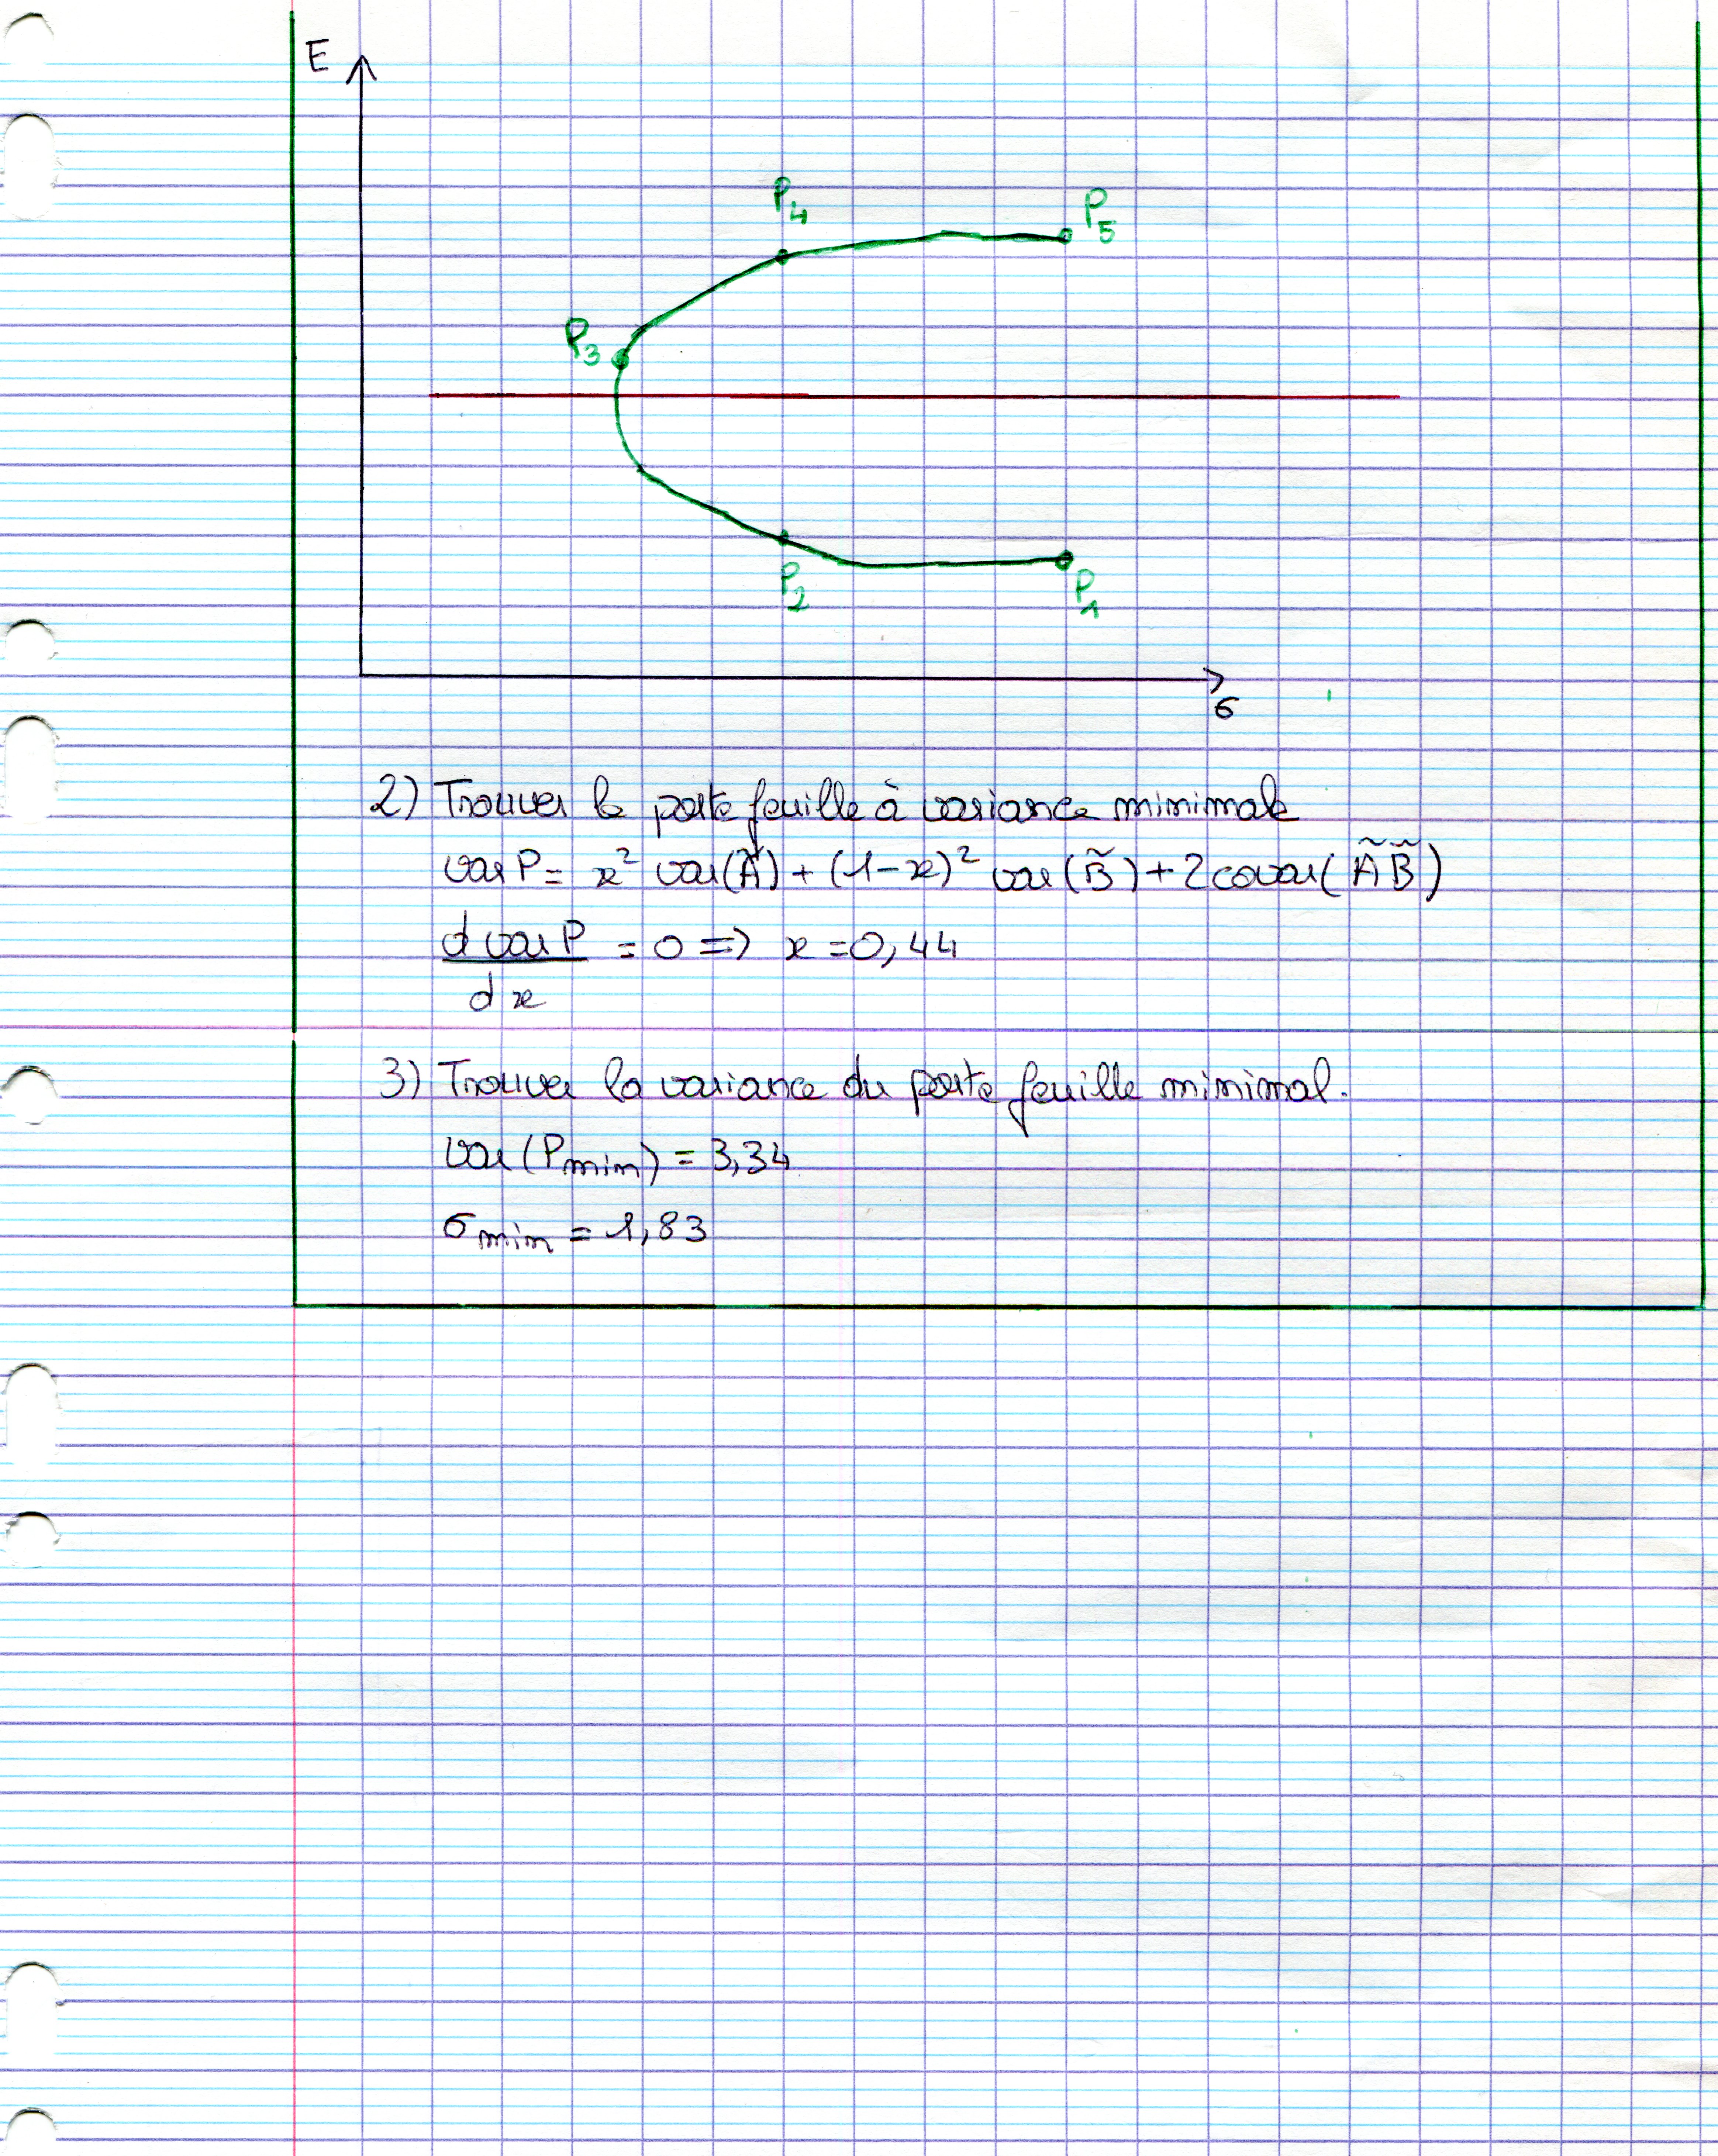 E
P4
P5
P3
P2
P1
σ
2) Trouver le portefeuille à variance minimale
var P = x² var(Ã) + (1-x)² var(B̃) + 2 covar(ÃB̃)
d var P / dx = 0 => x = 0,44
3) Trouver la variance du portefeuille minimal.
var(Pmin) = 3,34
σmin = 1,83